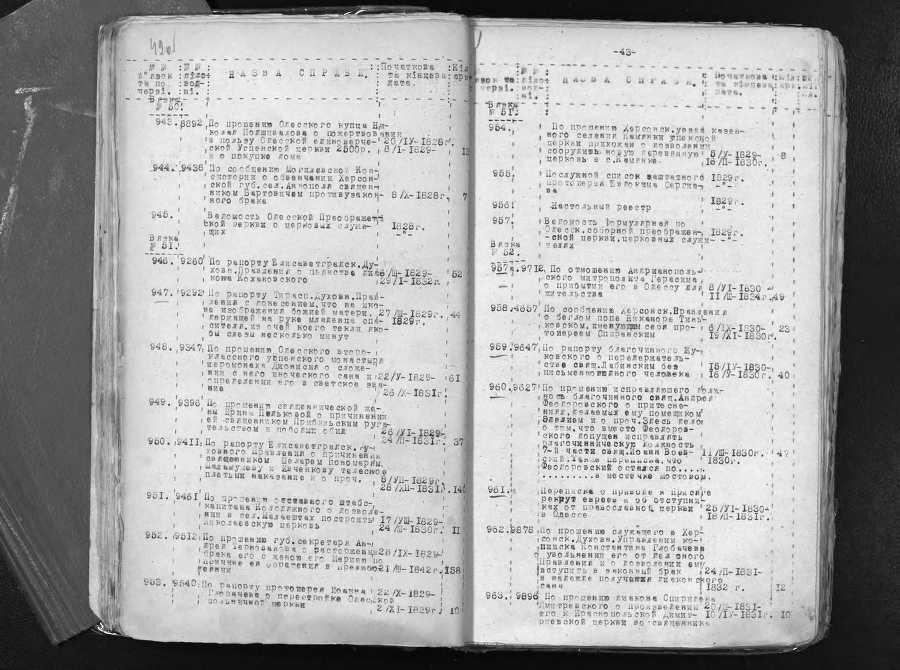 №№
в'язок
та по
черзі.
№№
діло-
вод-
ні.
НАЗВА СПРАВИ.
Початкова
та кінцева
дата.
Вязка
№ 50.
943. 8892. По прошению Одесского купца Ни-
колая Полшивалова о пожертвовании
в пользу Одесской единоверче-
ской Успенской церкви 2500р.
и о покупке дома
26/IV-1828г.
8/I-1829-
944. 9436 По сообщению Могилевской Кон-
систории о обвенчании Херсон-
ской губ.сел.Анополя священ-
ником Бартовичем противузакон-
ного брака
8/X-1828г.
7
945. Ведомость Одесской Преображен-
ской церкви о церковых служа-
щих
1828г.
-"-
Вязка
№ 51.
946. 9260 По рапорту Елисаветградск.Ду-
ховн.Правления о пьянстве дья-
кона Кохановского
6/Ш-1829-
29/I-1832г.
52
947. 9292 По рапорту Тирасп.Духовн.Прав-
ления с донесением,что на ико-
не изображения божией матери,
держащей на руке младенца спа-
сителя,из очей коего текли яко-
бы слезы несколько минут
27/Ш-1829г.
1829г.
44
948. 9347. По прошению Одесского второ-
классного успенского монастыря
иеромонаха Дионисия о сложе-
нии с него иноческого сана и
определении его в светское зва-
ние
22/У-1829-
26/X-1831г.
61
949. 9398 По прошению священнической же-
ны Ирины Пельковой о причинении
ей священником Прибыльским руга-
тельством и побоями обид
26/УI-1829-
24/П-1831г.
37
950. 9411. По рапорту Елисаветградск.Ду-
ховного Правления о причинении
священником Шеларем пономарям
Маламузову и Жиченкову телесное
плетьми наказание и о проч.
8/УП-1829г-
26/XП-1831г.
951. 9461 По прошению отставного штабс-
капитана Кололяжного о дозволе-
нии в сел.Малаештах построить
Николаевскую церковь
17/УШ-1829-
24/Ш-1830г.
11
952. 9512. По прошению губ.секретаря Ан-
дрея Тарнопанова о расторжении
брака его с женою его Мариею по
причине ея обращения в прелюбо-
деянии
28/IX-1829-
21/Ш-1842г.
158
953. 9540. По рапорту протоиерея Иоанна
Глобачева о перестройке Одесской
больничной церкви
22/X-1829-
2/XI-1829г.
10
-43-
№№
вязок та
черзі.
№№
діло-
вод-
ні.
НАЗВА СПРАВИ.
Початкова
та кінцева
дата.
Вязка
№ 51.
954. По прошению Херсонск.уезда казен-
ного селения Каменки успенской
церкви прихожан о дозволении
соорудить новую деревянную
церковь в с.Каменке.
5/У-1829-
18/П-1830г.
8
955. Послужной список заштатного
протоиерея Евдокима Сергие-
ва
1829г.
-"-
956. Настольный реестр
1829г.
-"-
957. Ведомость формулярная по
Одесск.соборной преображен-
ской церкви.церковных служи-
телях
1829г.
-"-
Вязка
№ 52.
957а. 9712. По отношению Андрианополь-
ского митрополита Герасима
о прибытии его в Одессу для
жительства
8/УI-1830-
11/Ш-1834г.
49
958. 4657 По сообщению Херсонск.Правления
о беглом попе Никаноре Тиль-
ковском,именующем себя про-
тоиереем Спиранским
6/IX-1830-
19/XI-1830г.
23
959. 9647. По рапорту благочинного Жу-
ковского о передержатель-
стве свящ.Лабинским без
письменнаго человека
15/IУ-1830-
18/У-1830г.
40
960. 9627. По прошению исправляющего дол-
жность благочинного свящ.Андрея
Феодоровского о притесне-
ниях,делаемых ему помещиком
Эделием и о проч.Здесь дело
о том,что вместо Феодоров-
ского допущен исправлять
благочинническую должность
7-й части свящ.Иоанн Воев-
ский.Также переписка,что
Феодоровский остался по.....
..........в местечке Мостовом.
11/Ш-1830г.
1830г.
47
961. Переписка о приводе к присяге
рекрут евреев и об отступни-
ках от православной церкви
в Одессе
25/УI-1830-
18/П-1831г.
962. 9878. По прошению служащего в Хер-
сонск.Духовн.Управлении ко-
пииста Константина Глобачева
о увольнении его от Духовного
Правления и о дозволении ему
вступить в законный брак
в надежде получения диаконского
сана
24/П-1831-
1832 г.
12
963. 9896 По прошению диакона Спиридона
Дмитревского о произведении
его к Краснопольской Димит-
риевской церкви во священника
26/П-1831-
16/IУ-1831г.
10